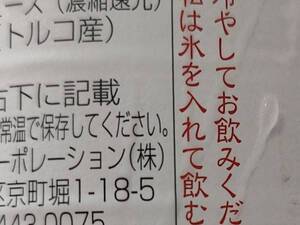 ース（濃縮還元）
（トルコ産）
右下に記載
常温で保存してください。
ーポレーション（株）
区京町堀1-18-5
443 0075
冷やしてお飲みくだ
は氷を入れて飲む